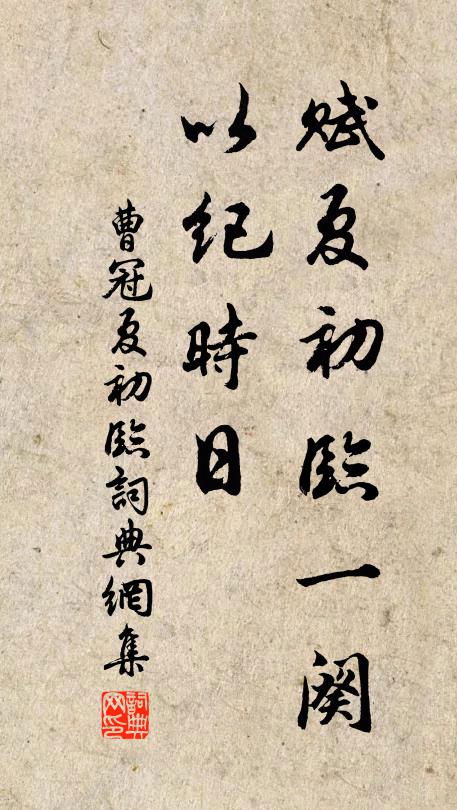 賦夏初臨一闋
以紀時日
曹冠夏初臨詞典網集
詞典網印